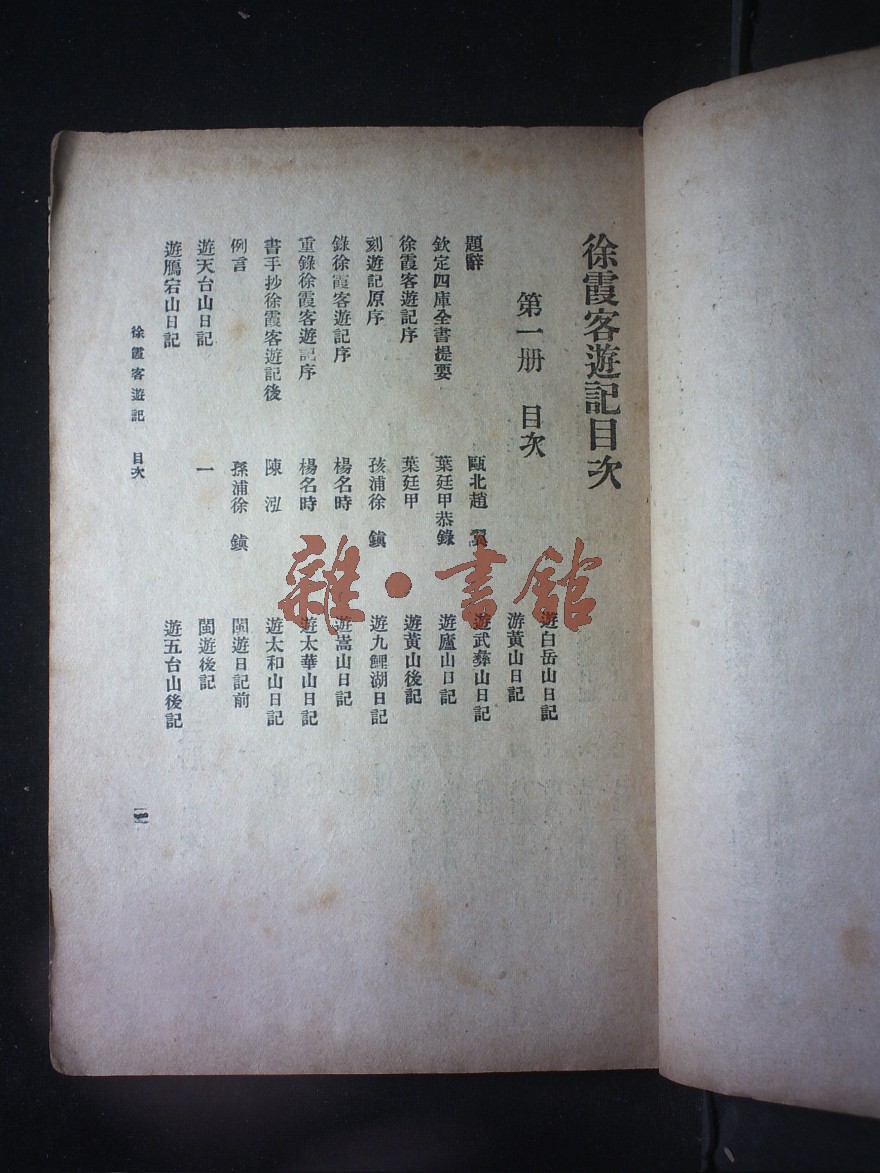 徐霞客遊記目次
第一册　目次
題辭　甌北趙　翼
欽定四庫全書提要　葉廷甲恭錄
徐霞客遊記序　葉廷甲
刻遊記原序　孩浦徐　鎮
錄徐霞客遊記序　楊名時
重錄徐霞客遊記序　楊名時
書手抄徐霞客遊記後　陳　泓
例言　孫浦徐　鎮
遊天台山日記　一
遊鴈宕山日記
遊白岳山日記
游黃山日記
遊武彝山日記
遊廬山日記
遊黃山後記
遊九鯉湖日記
遊嵩山日記
遊太華山日記
遊太和山日記
閩遊日記前
閩遊後記
遊五台山後記
徐霞客遊記　目次
雜·書館